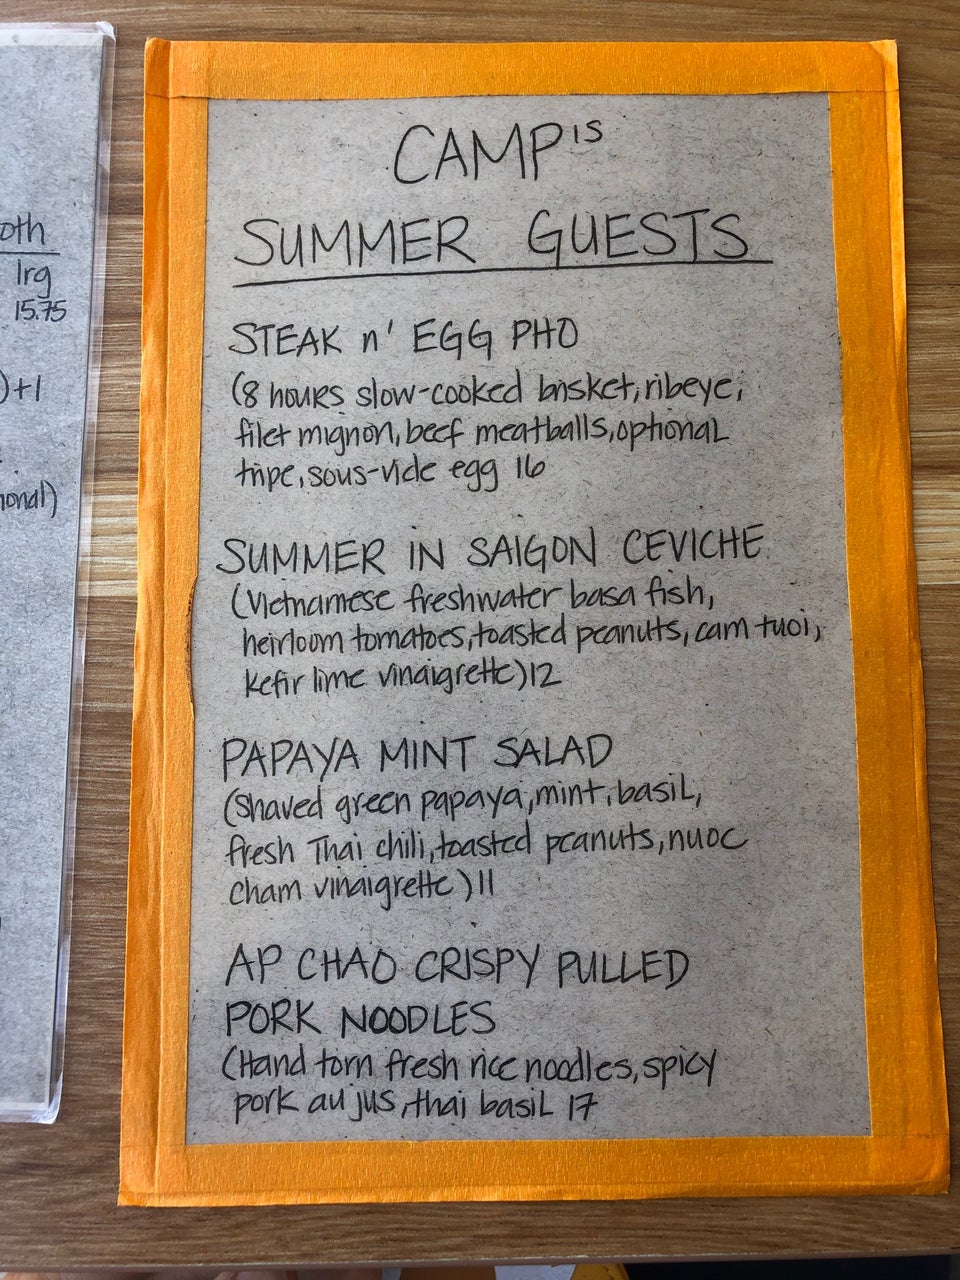 oth
lrg
15.75
)+1
ional)
CAMP'S
SUMMER GUESTS
STEAK n' EGG PHO
(8 hours slow-cooked brisket, ribeye,
filet mignon, beef meatballs, optional
tripe, sous-vide egg 16
SUMMER IN SAIGON CEVICHE
(Vietnamese freshwater basa fish,
heirloom tomatoes, toasted peanuts, cam tuoi,
kefir lime vinaigrette) 12
PAPAYA MINT SALAD
(shaved green papaya, mint, basil,
fresh Thai chili, toasted peanuts, nuoc
cham vinaigrette) 11
AP CHAO CRISPY PULLED
PORK NOODLES
(Hand torn fresh rice noodles, spicy
pork au jus, thai basil 17